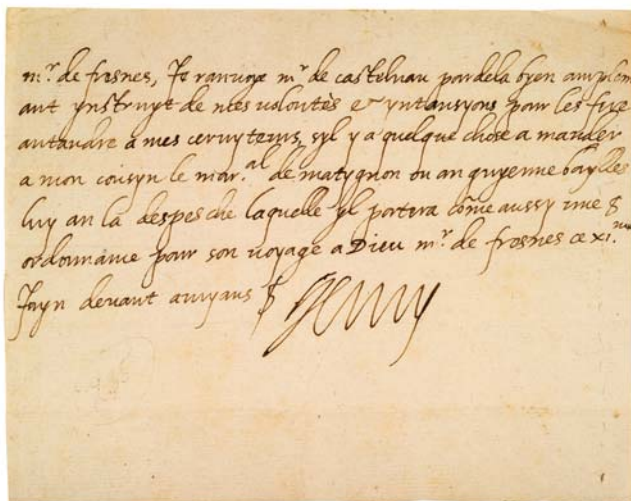 mr. de fresnes, Je ranvoye mr de castelnau pardela byen amplem
ant ynstruyt de mes volontès et yntansyons pour les fere
antandre a mes ceruyteurs, syl y a quelque chose a mander
a mon cousyn le mar.al de matygnon ou an guyenne baylles
luy an la despesche laquelle yl portera cõme aussy une
ordonnance pour son voyage a Dieu mr. de fresnes ce xi.me
Juyn devant amyans Henry